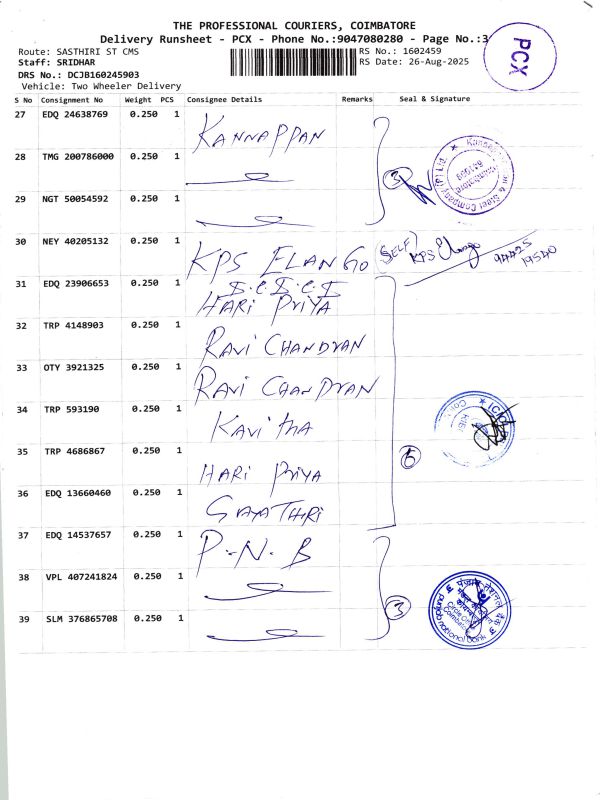 THE PROFESSIONAL COURIERS, COIMBATORE
Delivery Runsheet - PCX - Phone No.:9047080280 - Page No.:3
PCX
Route: SASTHIRI ST CMS
RS No.: 1602459
Staff: SRIDHAR
RS Date: 26-Aug-2025
DRS No.: DCJB160245903
Vehicle: Two Wheeler Delivery
S No Consignment No Weight PCS Consignee Details Remarks Seal & Signature
27 EDQ 24638769 0.250 1 KANNAPPAN
28 TMG 200786000 0.250 1
3
29 NGT 50054592 0.250 1
30 NEY 40205132 0.250 1 KPS ELANGO (SELF) KPS Elango 94425 19540
31 EDQ 23906653 0.250 1 HARI PRIYA
32 TRP 4148903 0.250 1 RAVI CHANDRAN
33 OTY 3921325 0.250 1 RAVI CHANDRAN
34 TRP 593190 0.250 1 KAVITHA
35 TRP 4686867 0.250 1 HARI PRIYA
6
36 EDQ 13660460 0.250 1 GAYATHIRI
37 EDQ 14537657 0.250 1 P.N.B
38 VPL 407241824 0.250 1
3
39 SLM 376865708 0.250 1